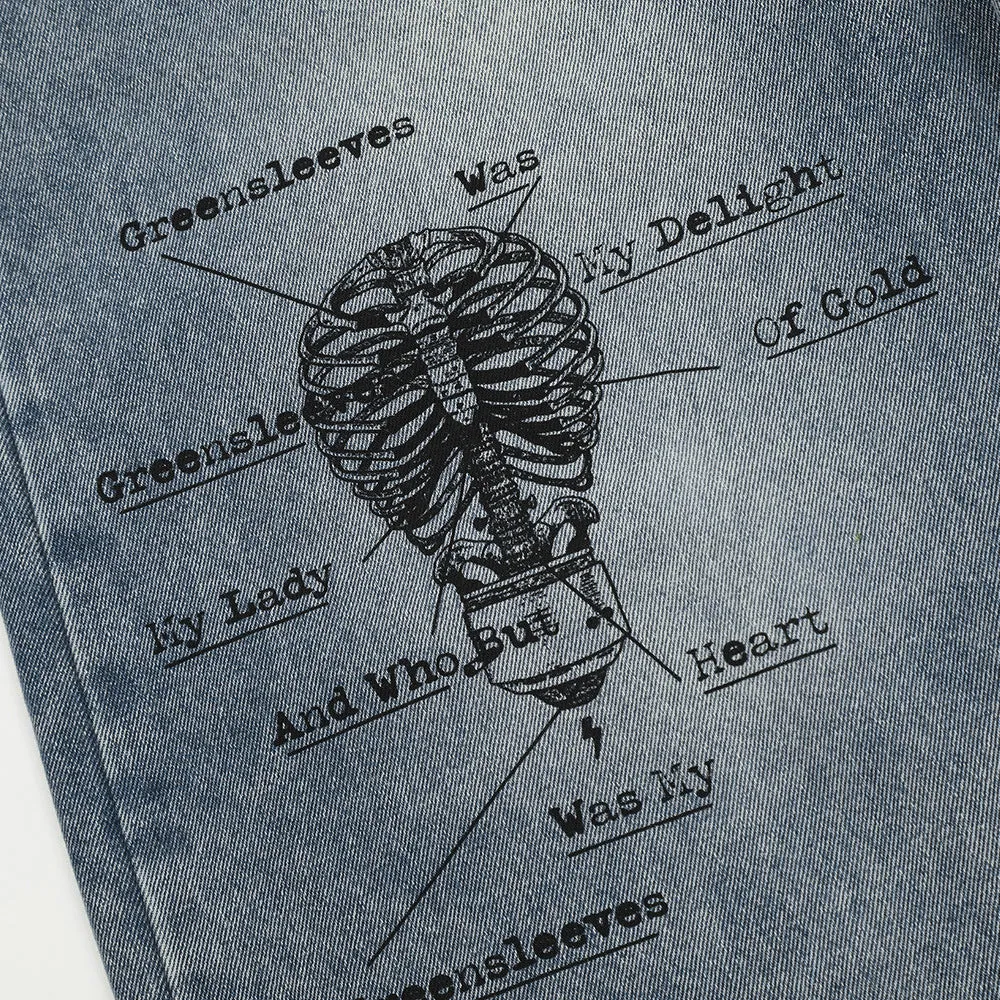 Greensleeves
Was
My Delight
Of Gold
Greensleeves
My Lady
And Who But
Heart
Was My
eensleeves